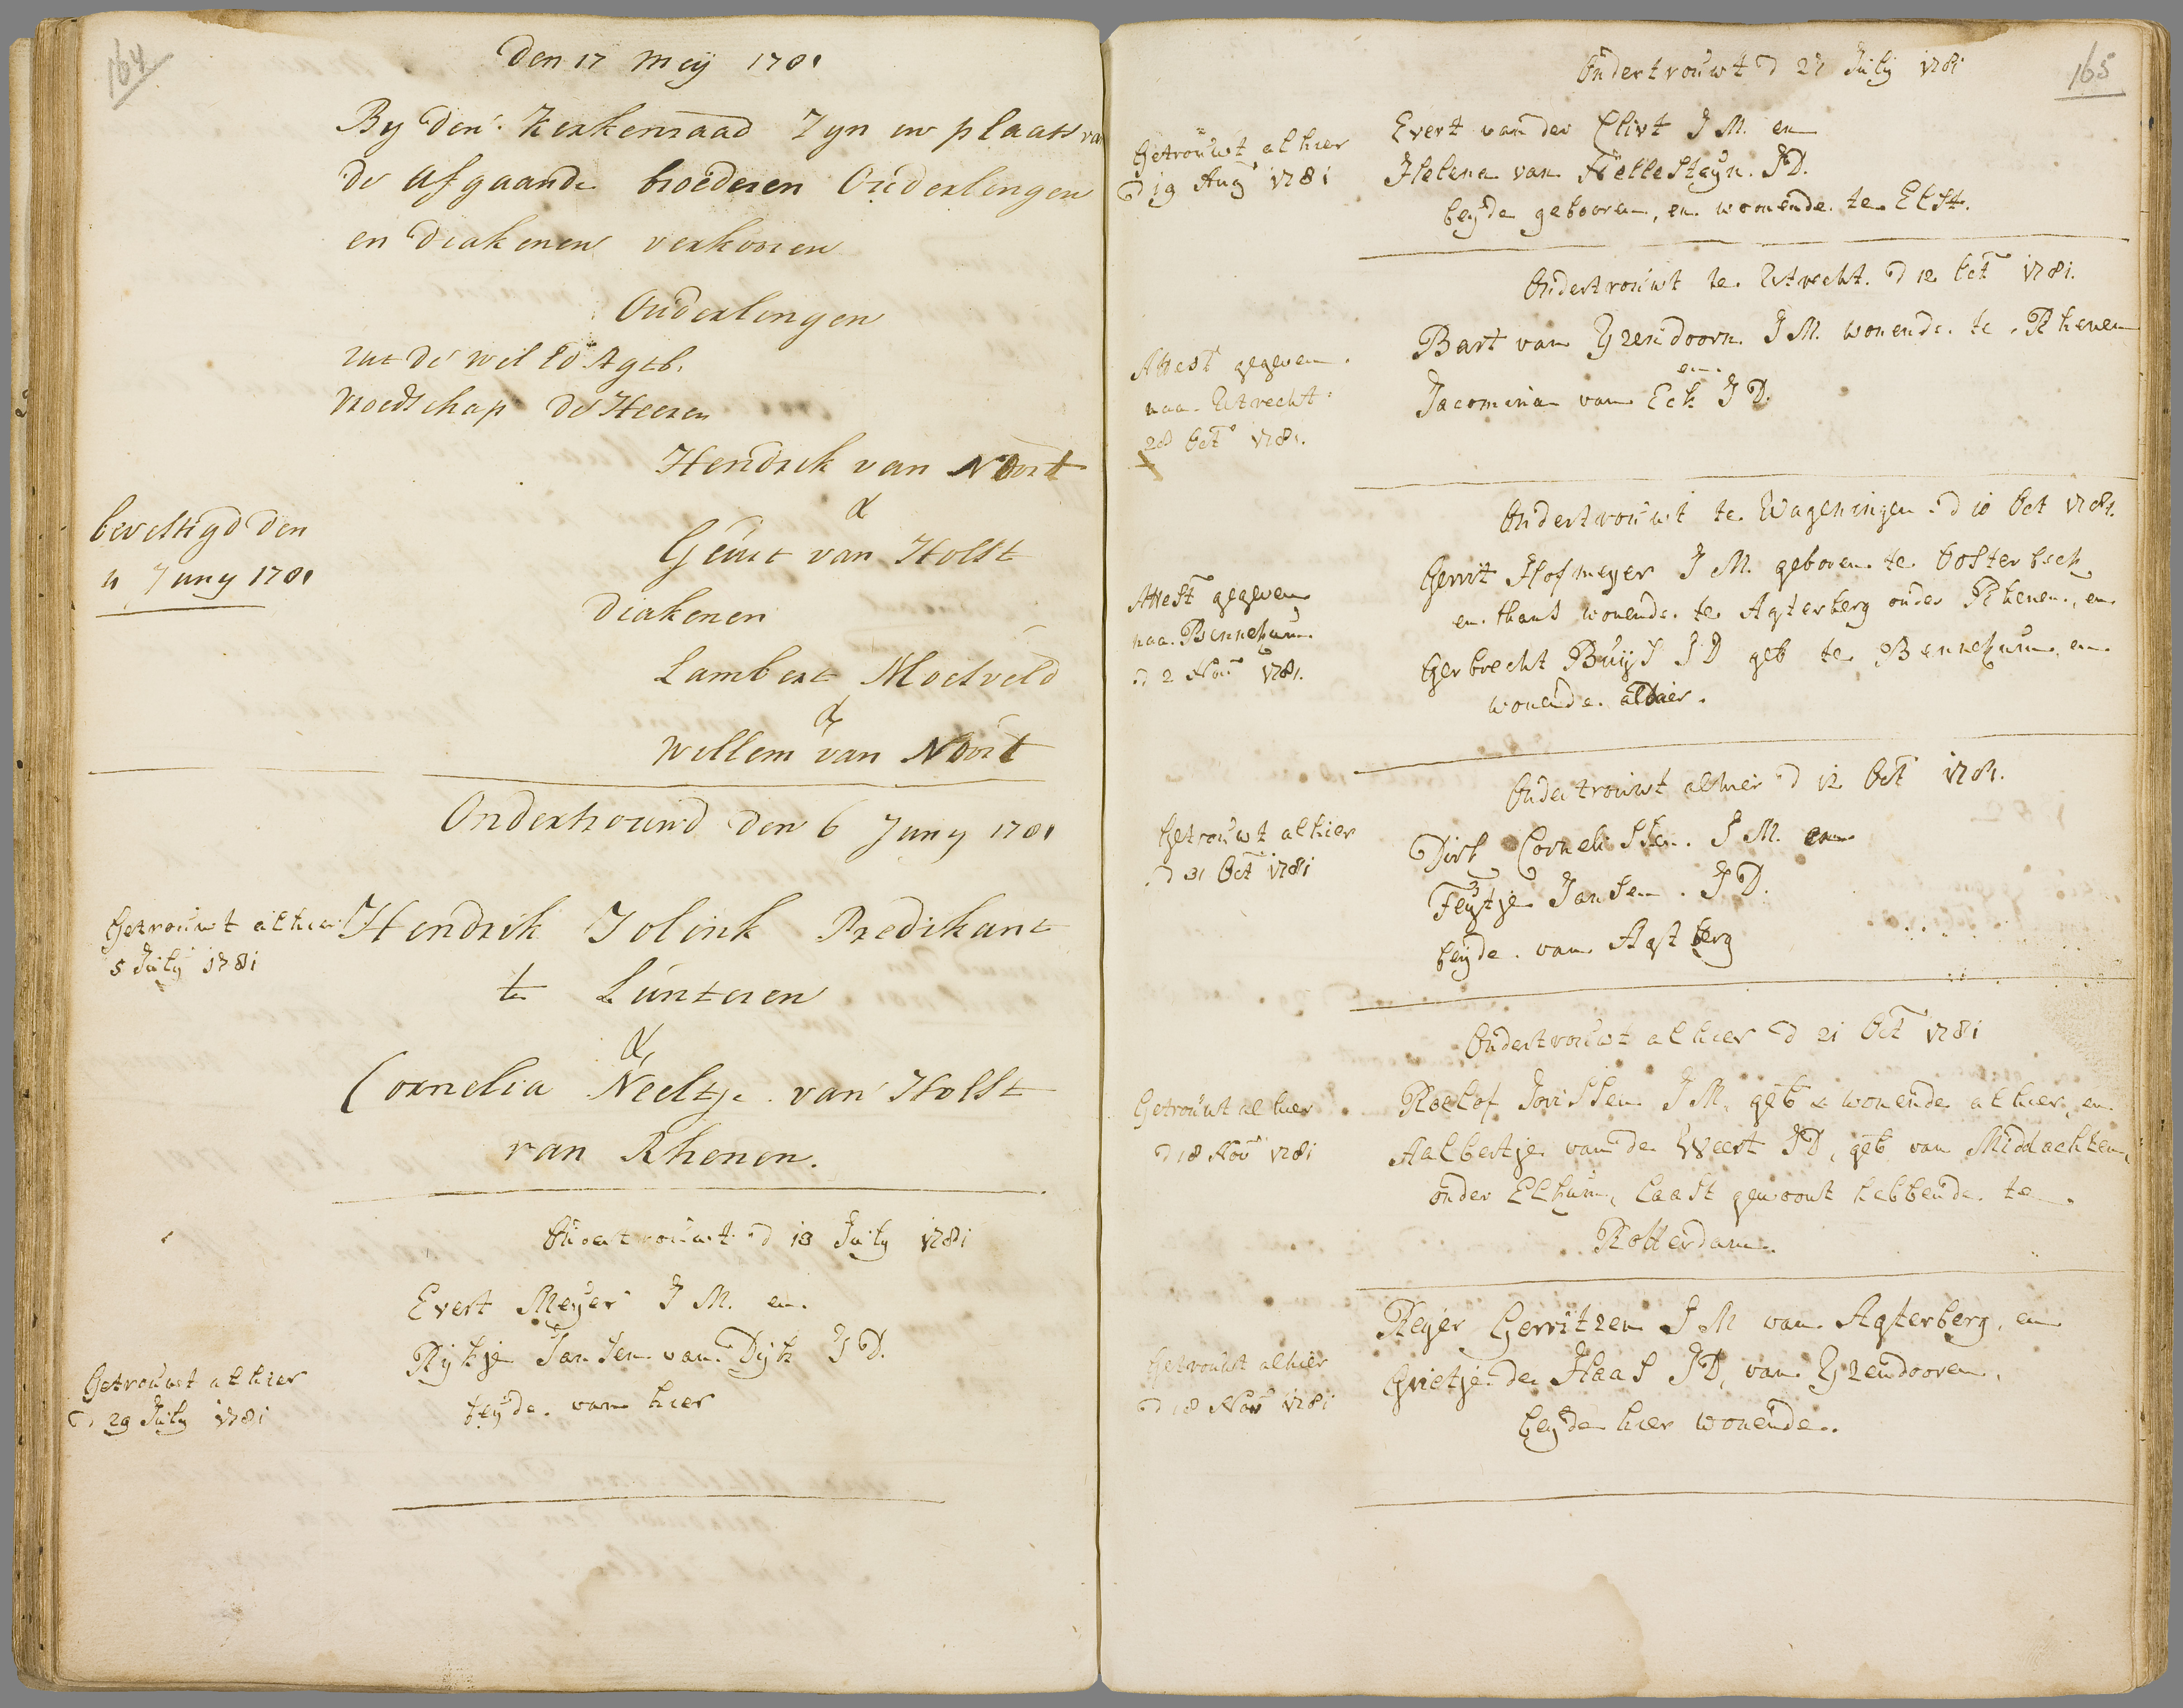 164
Den 17 Meij 1781
By den Kerkenraad Zyn in plaats van
de afgaande broederen Ouderlingen
en Diakenen verkooren
Ouderlingen
uit de wel Ed Agtb.
Vroedschap de Heeren
Hendrik van Noort
&
bevestigd den
11 Juny 1781
Geurt van Holst
Diakenen
Lambert Moesveld
&
Willem van Noort
Ondertrouwd den 6 Juny 1781
Getrouwt alhier
5 July 1781
Hendrik Jolink Predikant
te Lunteren
&
Cornelia Neeltje van Holst
van Rhenen.
Ondertrouwt d 13 July 1781
Evert Meyer J M. en
Rykje Jansen van Dyk J D.
beyde van hier
Getrouwt alhier
d 29 July 1781
165
Ondertrouwt d 27 July 1781
Getrouwt alhier
d 19 Aug 1781
Evert van der Clift J M. en
Helena van Hellesteyn. J D.
beyde gebooren, en wonende te Elst.
Ondertrouwt te Utrecht. d 12 Oct 1781.
Attest gegeven
naa Utrecht
28 Oct 1781.
Bart van Yzendoorn J M. wonende te Rhenen
en
Jacomina van Eck J D.
Ondertrouwt te Wageningen d 10 Oct 1781.
Attest gegeven
naa Bennekum
d 2 Nov 1781.
Gerrit Hofmeyer J M. geboren te Oosterbeek
en thans wonende te Agterberg onder Rhenen, en
Gerbrecht Buys J D geb te Bennekum, en
wonende aldaer.
Ondertrouwt alhier d 12 Oct 1781.
Getrouwt alhier
d 31 Oct 1781
Dirk Cornelissen. J M. en
Feytje Jansen. J D.
beyde van Agtberg
Ondertrouwt alhier d 21 Oct 1781
Getrouwt alhier
d 18 Nov 1781
Roelof Jorissen J M. geb & wonende alhier, en
Aalbertje van de Weert J D, geb van Middachten,
onder Elkum, laast gewoont hebbende te
Rotterdam.
Getrouwt alhier
d 18 Nov 1781
Reyer Gerritzen J M van Agterberg, en
Grietje de Haas J D, van Yzendooren,
beyde hier wonende.